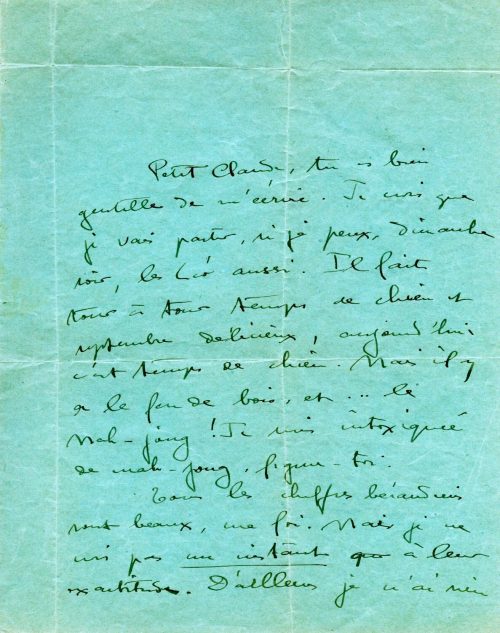 Petit Claude, tu es bien
gentille de m'écrire. Je crois que
je vais partir, si je peux, dimanche
soir, les Léo aussi. Il fait
tour à tour temps de chien et
septembre délicieux, aujourd'hui
c'est temps de chien. Mais il y
a le feu de bois, et ... le
mah-jong ! Je suis intoxiquée
de mah-jong, figure-toi.
Tous les chiffres béraudiens
sont beaux, ma foi. Mais je ne
crois pas un instant à leur
exactitude. D'ailleurs je n'ai rien